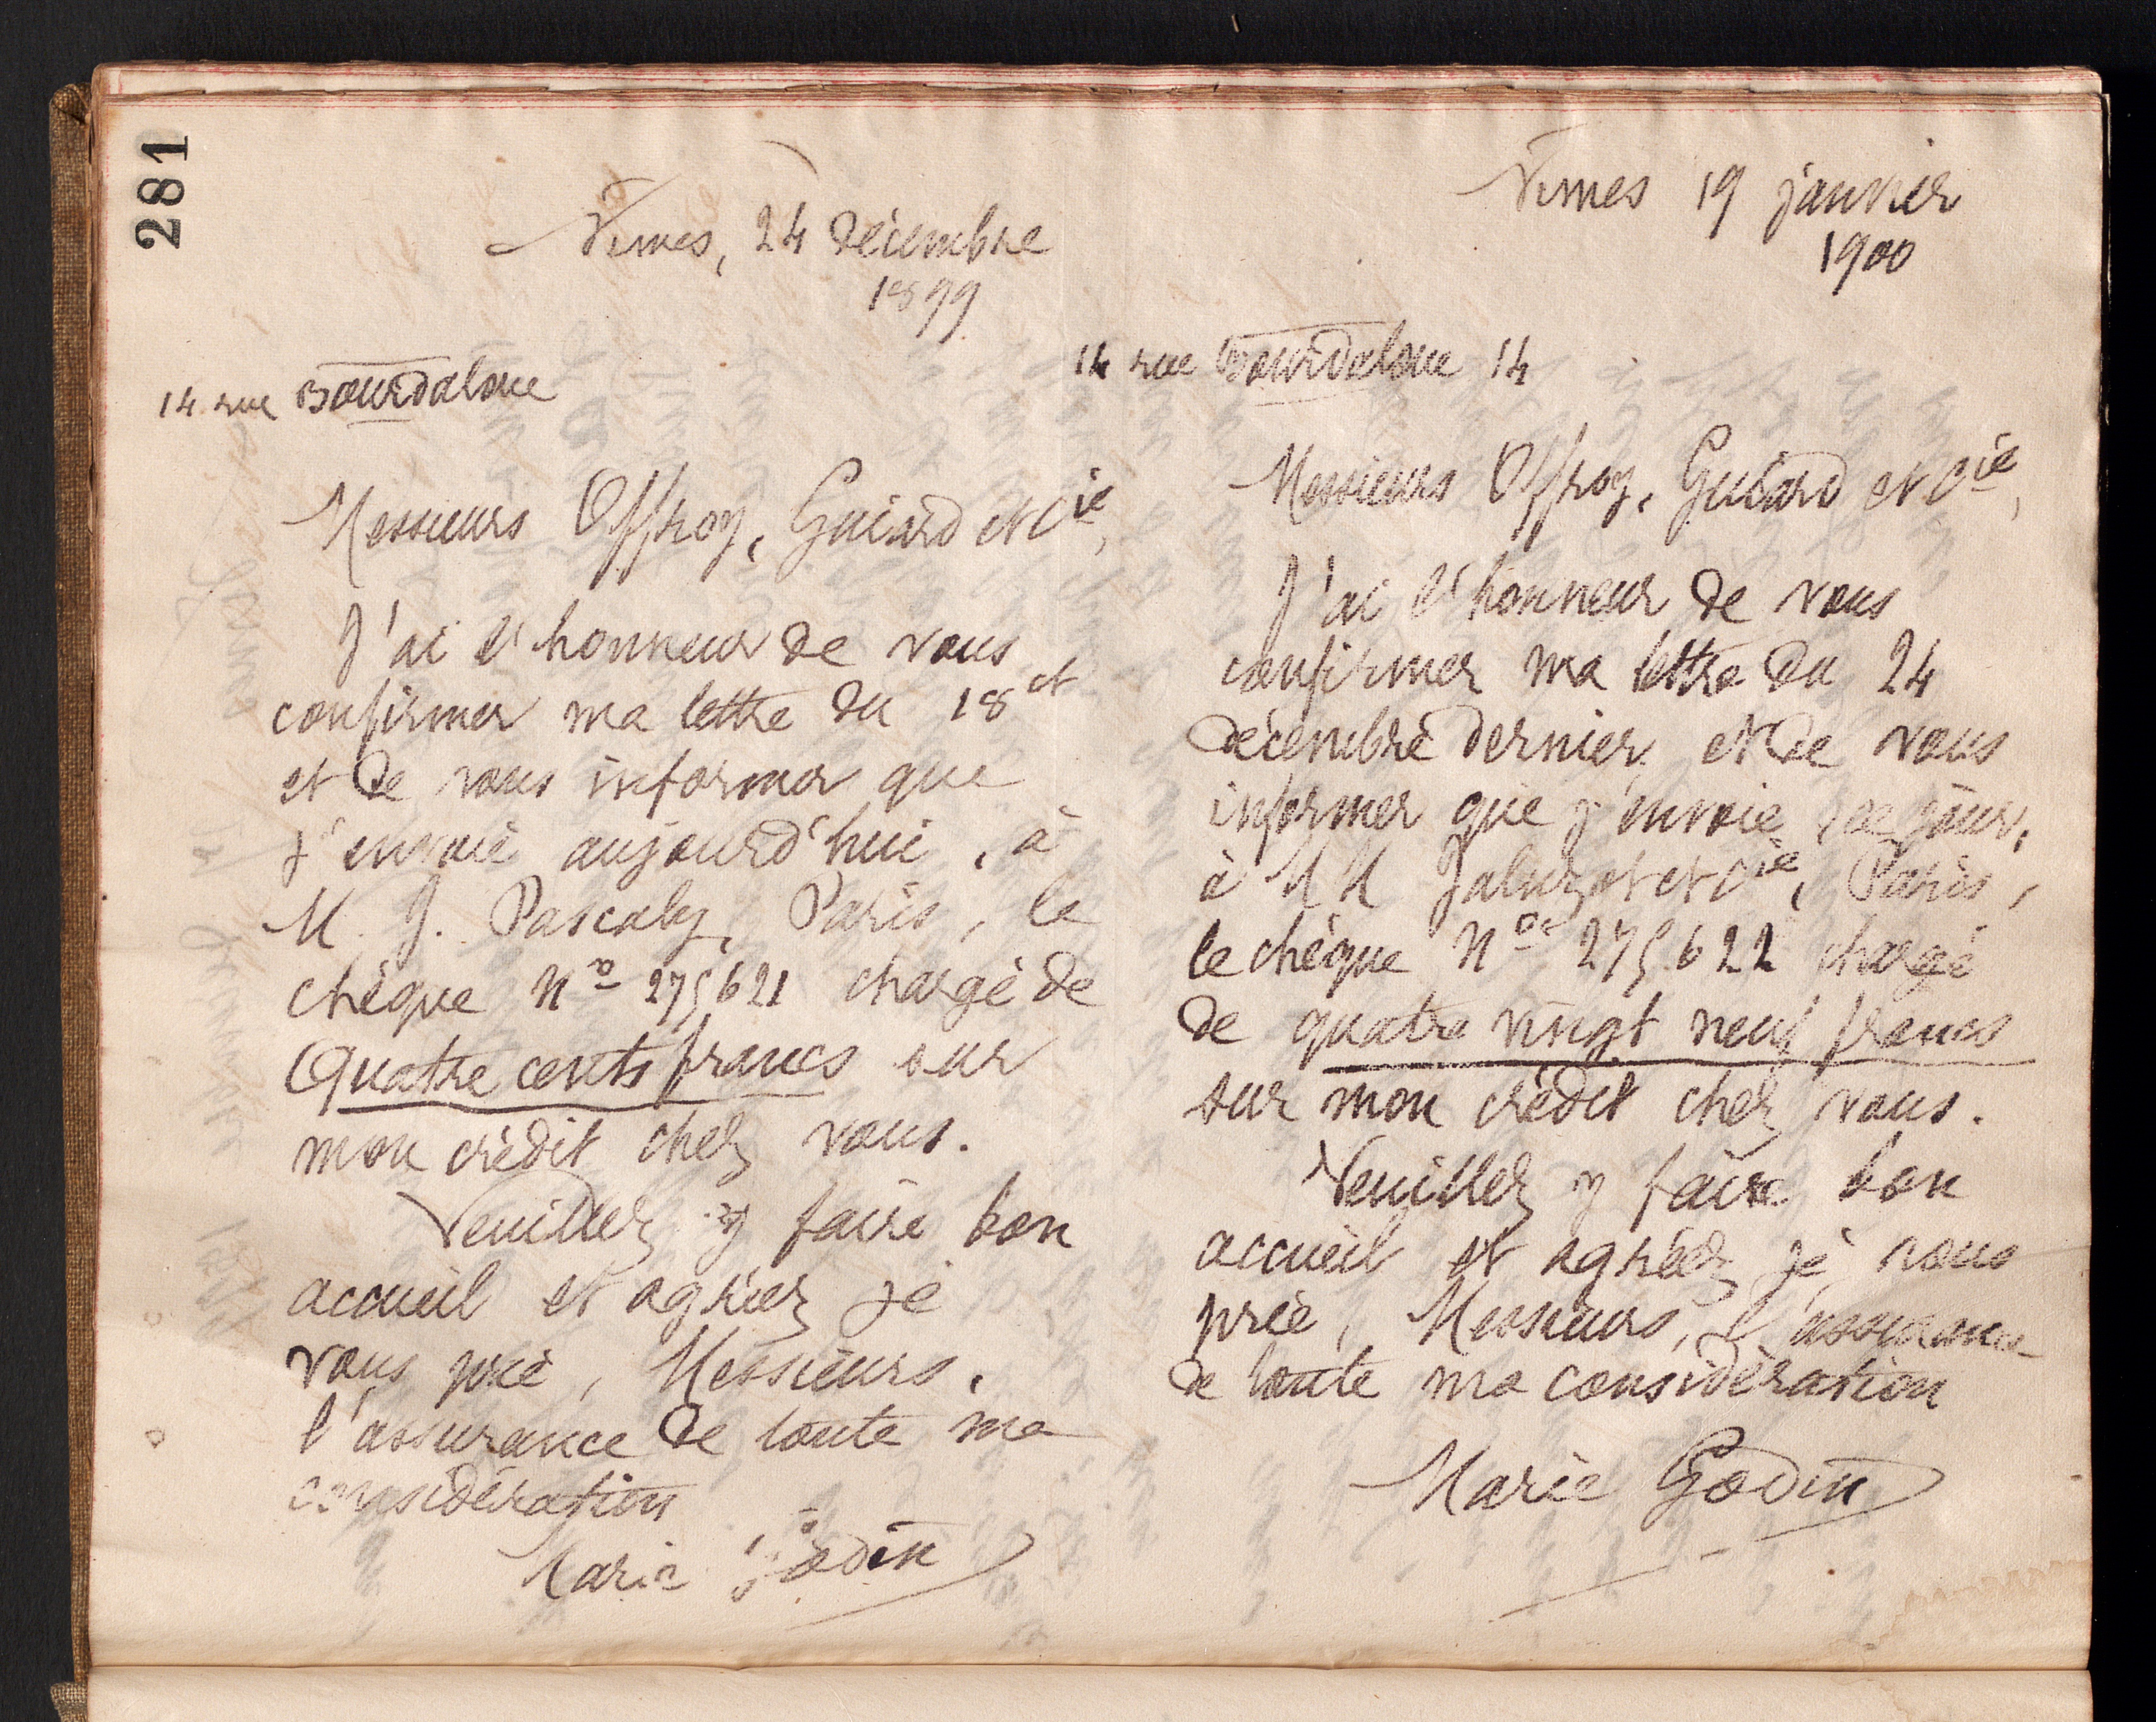 281
Nimes, 24 décembre
1899
14 rue Bourdaloue
Messieurs Offroy, Guiard et Cie,
J'ai l'honneur de vous
confirmer ma lettre du 18 ct
et de vous informer que
j'envoie aujourd'hui, à
M. J. Pascaly, Paris, le
chèque No 275621 chargé de
Quatre cents francs sur
mon crédit chez vous.
Veuillez y faire bon
accueil et agréer je
vous prie, Messieurs,
l'assurance de toute ma
considération
Marie Godin
Nimes 19 janvier
1900
14 rue Bourdaloue 14
Messieurs Offroy, Guiard et Cie,
J'ai l'honneur de vous
confirmer ma lettre du 24
décembre dernier et de vous
informer que j'envoie, ce jour,
à MM Jaluzot et Cie, Paris,
le chèque No 275.622 chargé
de quatre vingt neuf francs
sur mon crédit chez vous.
Veuillez y faire bon
accueil et agréez, je vous
prie, Messieurs, l'assurance
de toute ma considération
Marie Godin